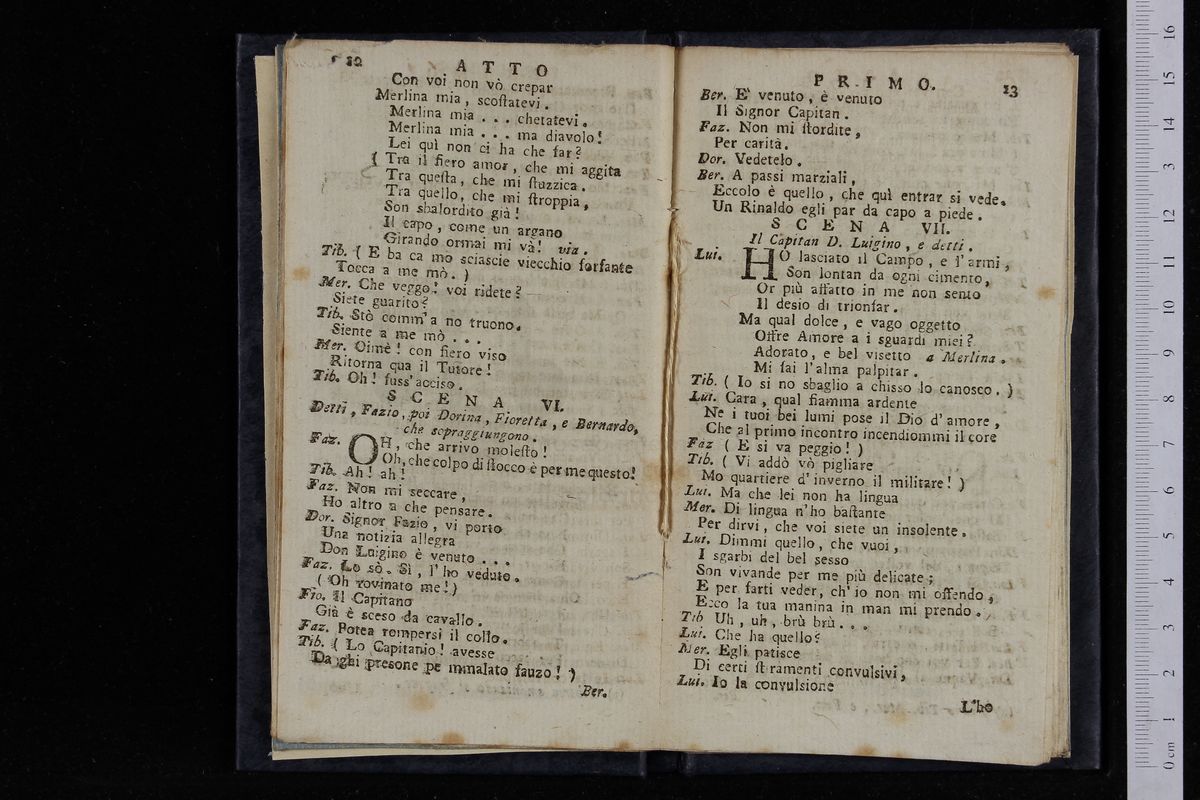 12
ATTO
Con voi non vò crepar
Merlina mia, scoſtatevi.
Merlina mia . . . chetatevi.
Merlina mia . . . ma diavolo!
Lei quì non ci ha che far?
( Tra il fiero amor, che mi aggita
Tra queſta, che mi ſtuzzica.
Tra quello, che mi ſtroppia,
Son sbalordito già!
Il capo, come un argano
Girando ormai mi và! via.
Tib. ( E ba ca mo sciascie viecchio forfante
Tocca a me mò. )
Mer. Che veggo! voi ridete?
Siete guarito?
Tib. Stò comm'a no truono.
Siente a me mò . . .
Mer. Oimè! con fiero viso
Ritorna qua il Tutore!
Tib. Oh! fuss'acciso.
SCENA VI.
Detti, Fazio, poi Dorina, Fioretta, e Bernardo,
che sopraggiungono.
Faz. OH, che arrivo moleſto!
Oh, che colpo di ſtocco è per me queſto!
Tib. Ah! ah!
Faz. Non mi seccare,
Ho altro a che pensare.
Dor. Signor Fazio, vi porto
Una notizia allegra
Don Luigino è venuto . . .
Faz. Lo sò. Sì, l'ho veduto.
( Oh rovinato me! )
Fio. Il Capitano
Già è sceso da cavallo.
Faz. Potea rompersi il collo.
Tib. ( Lo Capitanio! avesse
Da ghi presone pe mmalato fauzo! )
Ber.
PRIMO.
13
Ber. E' venuto, è venuto
Il Signor Capitan.
Faz. Non mi ſtordite,
Per carità.
Dor. Vedetelo.
Ber. A passi marziali,
Eccolo è quello, che quì entrar si vede.
Un Rinaldo egli par da capo a piede.
SCENA VII.
Il Capitan D. Luigino, e detti.
Lui. HO lasciato il Campo, e l'armi,
Son lontan da ogni cimento,
Or più affatto in me non sento
Il desio di trionfar.
Ma qual dolce, e vago oggetto
Offre Amore a i sguardi miei?
Adorato, e bel visetto a Merlina.
Mi fai l'alma palpitar.
Tib. ( Io si no sbaglio a chisso lo canosco. )
Lui. Cara, qual fiamma ardente
Ne i tuoi bei lumi pose il Dio d'amore,
Che al primo incontro incendiommi il core
Faz ( E si va peggio! )
Tib. ( Vi addò vò pigliare
Mo quartiere d'inverno il militare! )
Lui. Ma che lei non ha lingua
Mer. Di lingua n'ho baſtante
Per dirvi, che voi siete un insolente.
Lui. Dimmi quello, che vuoi,
I sgarbi del bel sesso
Son vivande per me più delicate;
E per farti veder, ch'io non mi offendo,
Ecco la tua manina in man mi prendo.
Tib Uh, uh, brù brù . . .
Lui. Che ha quello?
Mer. Egli patisce
Di certi ſtiramenti convulsivi,
Lui. Io la convulsione
L'ho
0 cm 1 2 3 4 5 6 7 8 9 10 11 12 13 14 15 16